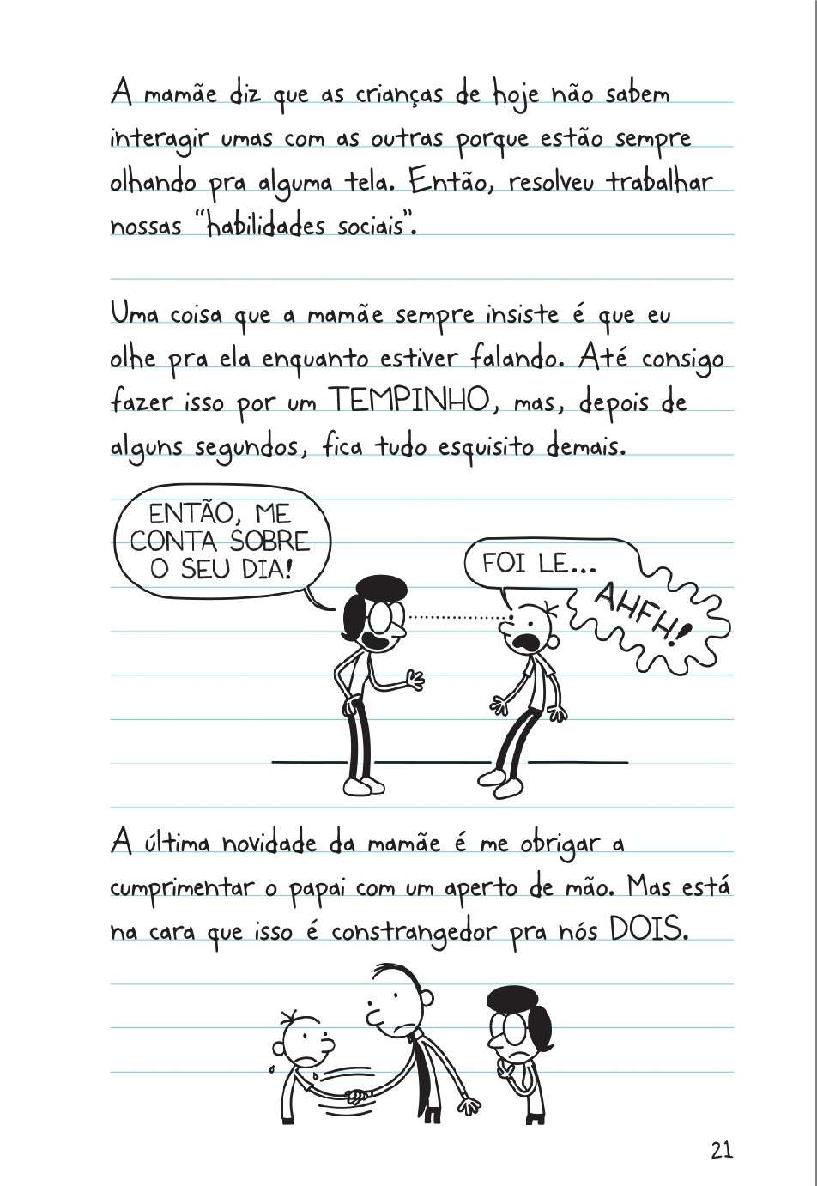 A mamãe diz que as crianças de hoje não sabem
interagir umas com as outras porque estão sempre
olhando pra alguma tela. Então, resolveu trabalhar
nossas “habilidades sociais”.
Uma coisa que a mamãe sempre insiste é que eu
olhe pra ela enquanto estiver falando. Até consigo
fazer isso por um TEMPINHO, mas, depois de
alguns segundos, fica tudo esquisito demais.
ENTÃO, ME
CONTA SOBRE
O SEU DIA!
FOI LE...
AHFH!
A última novidade da mamãe é me obrigar a
cumprimentar o papai com um aperto de mão. Mas está
na cara que isso é constrangedor pra nós DOIS.
21